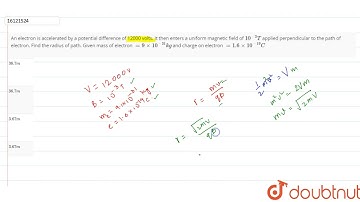 16121524
An electron is accelerated by a potential difference of 12000 volts. It then enters a uniform magnetic field of 10⁻³T applied perpendicular to the path of
electron. Find the radius of path. Given mass of electron = 9 × 10⁻³¹kg and charge on electron = 1.6 × 10⁻¹⁹C
36.7m
36.7m
3.67m
3.67m
V = 12000V
B = 10⁻³T
mₑ = 9×10⁻³¹ kg
e = 1.6×10⁻¹⁹C
r = mv/qB
r = √2mV/qB
½mv² = V
m²v² = 2Vm
mv = √2mV
doubtnut